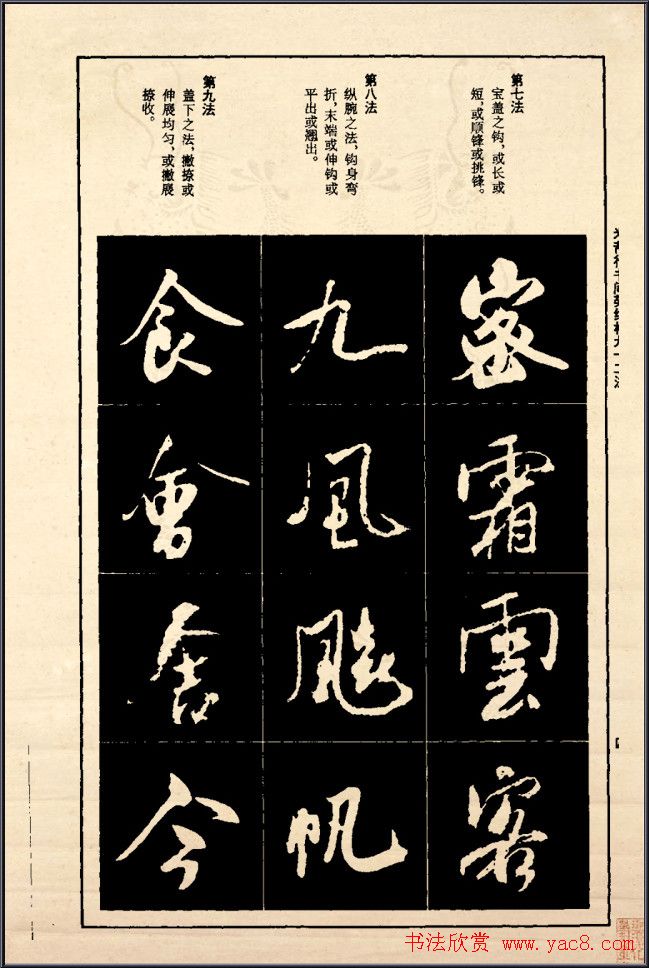 第七法
宝盖之钩，或长或
短，或顺锋或挑锋。
第八法
纵腕之法，钩身弯
折，末端或伸钩或
平出或翘出。
第九法
盖下之法，撇捺或
伸展均匀，或撇展
捺收。
密霜雲客
九風飚帆
食會舍今
书法欣赏 www.yac8.com